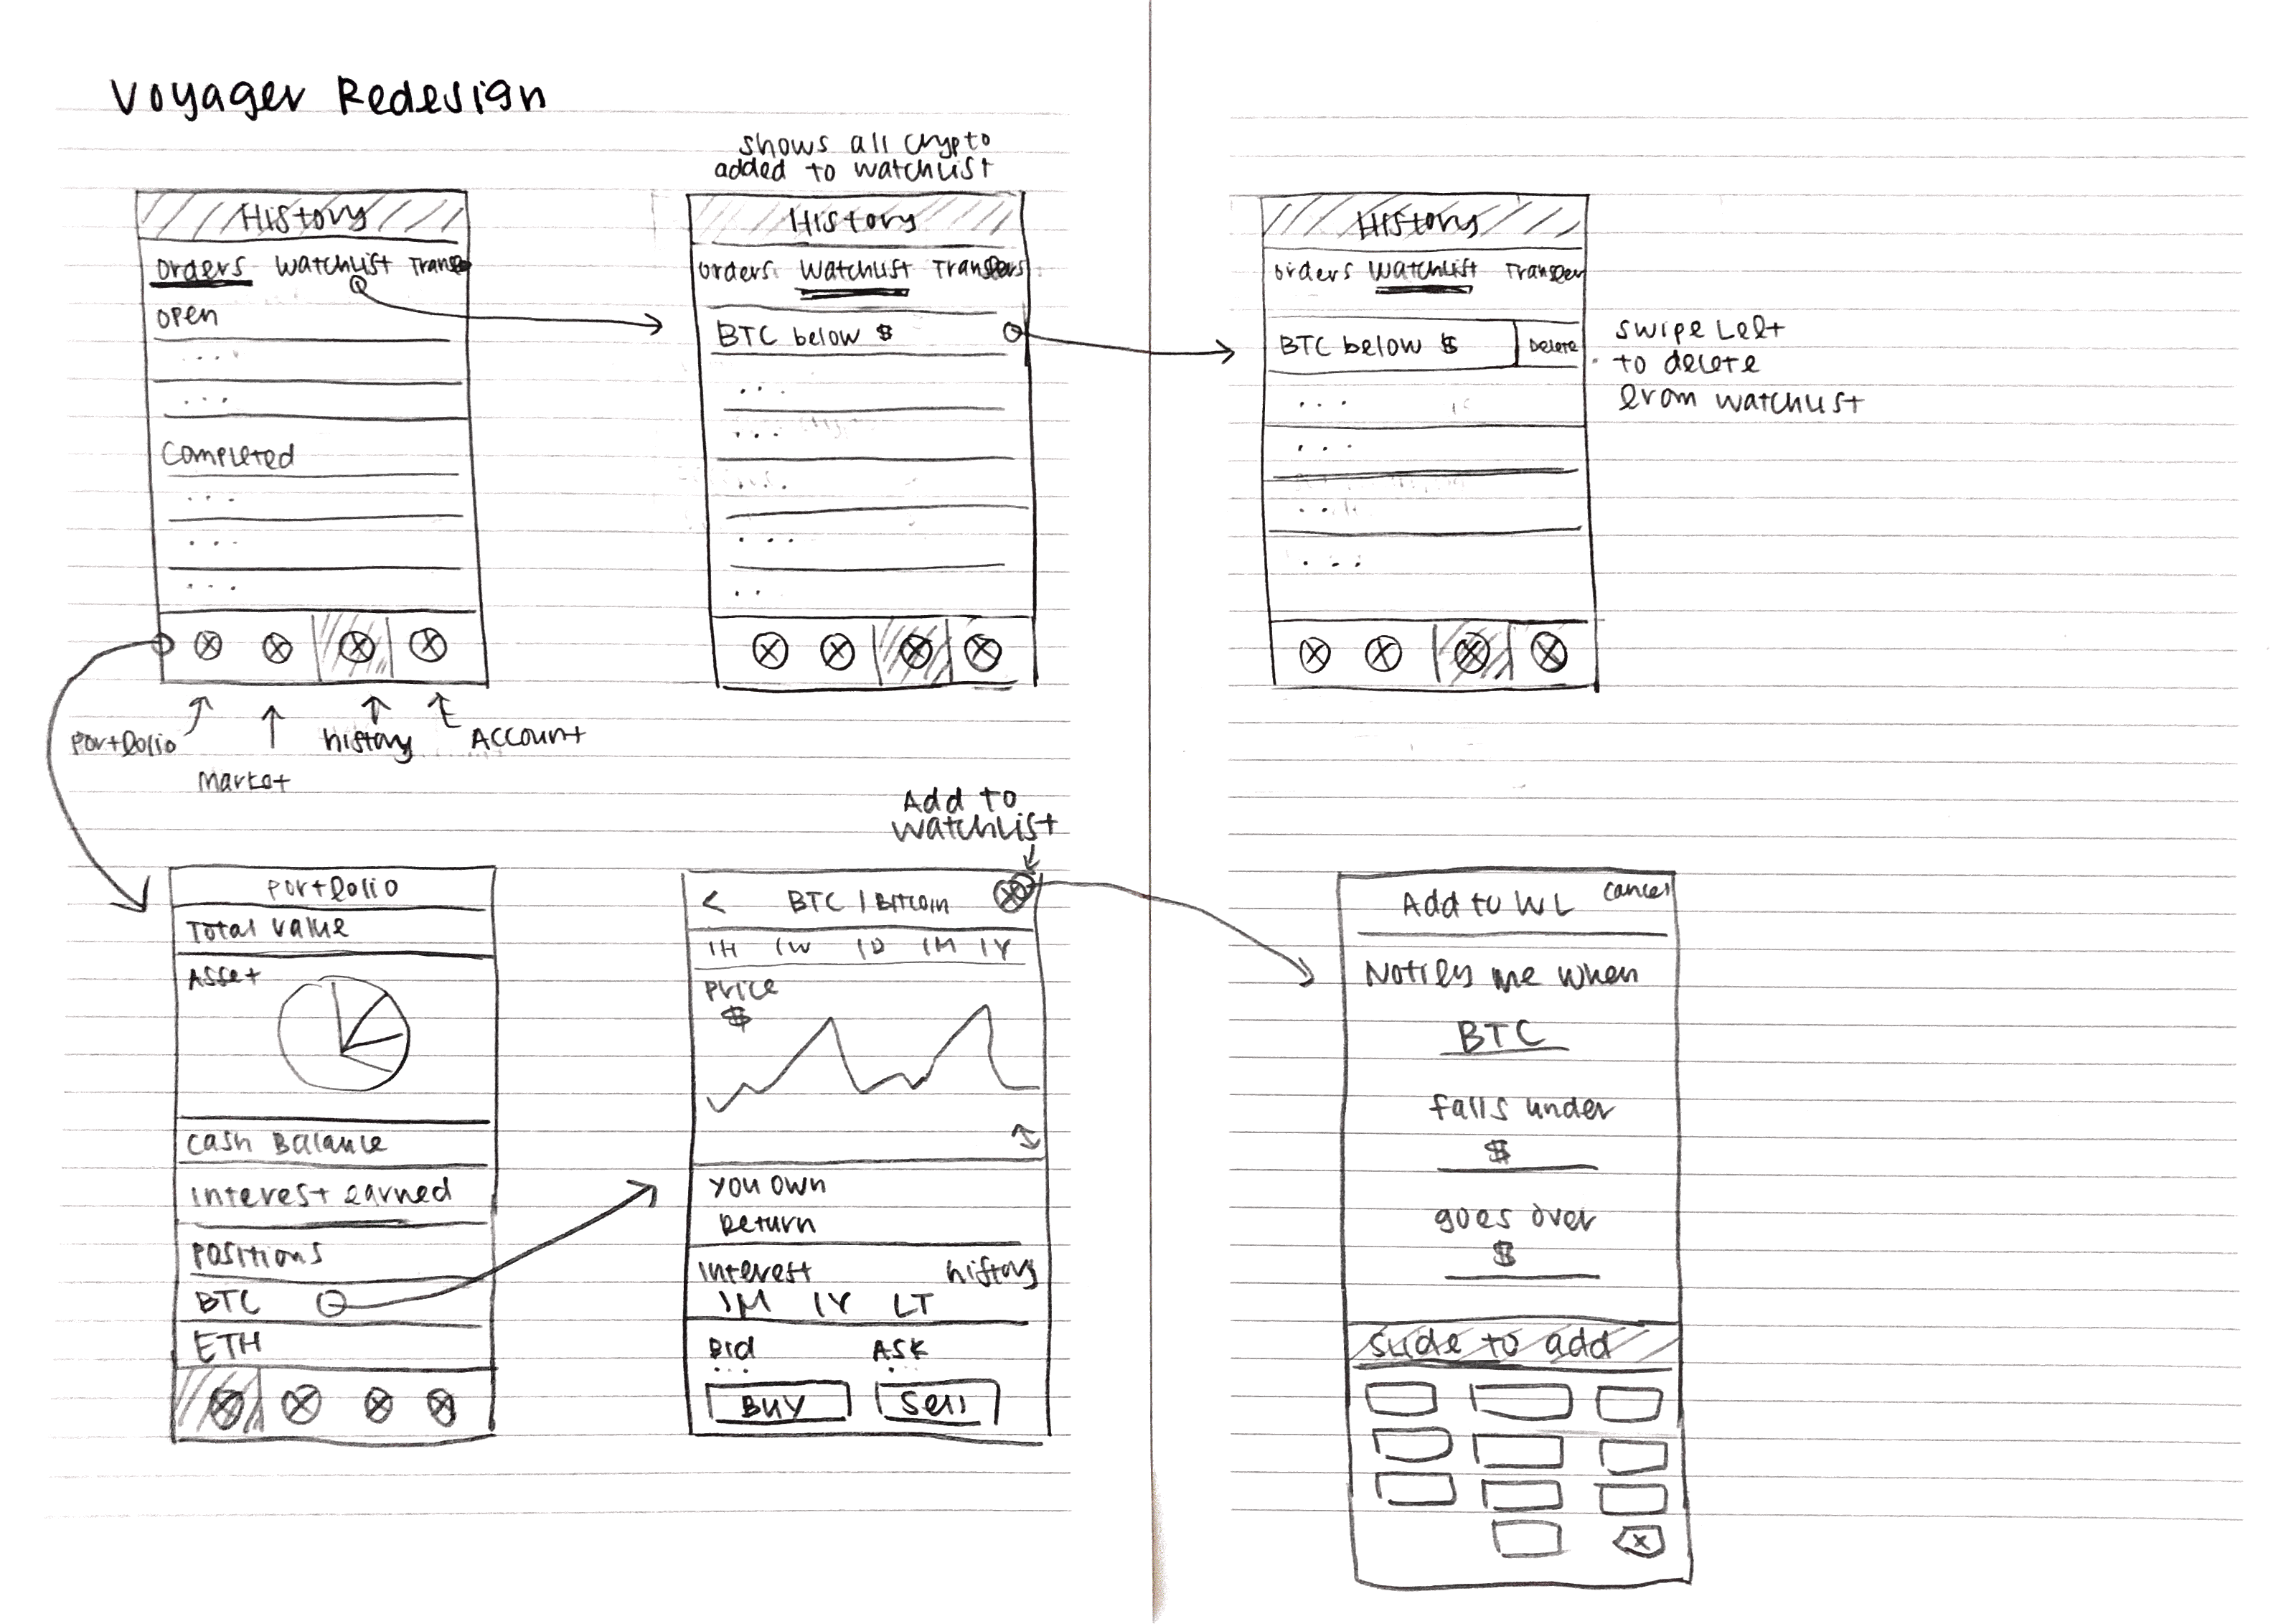 Voyager Redesign
shows all crypto
added to watchlist
History
Orders Watchlist Transfe
Open
...
...
Completed
...
...
...
Portfolio
Market
history
Account
History
Orders Watchlist Transfers
BTC below $
...
...
...
...
..
History
Orders Watchlist Transfer
BTC below $ Delete
...
...
...
...
swipe left
to delete
from watchlist
Portfolio
Total value
Asset
Cash Balance
Interest earned
Positions
BTC
ETH
Add to
watchlist
< BTC / Bitcoin
1H 1W 1D 1M 1Y
Price
$
You own
Return
Interest history
1M 1Y LT
Bid Ask
... ...
Buy Sell
Add to WL Cancel
Notify me when
BTC
falls under
$
goes over
$
Slide to add
x